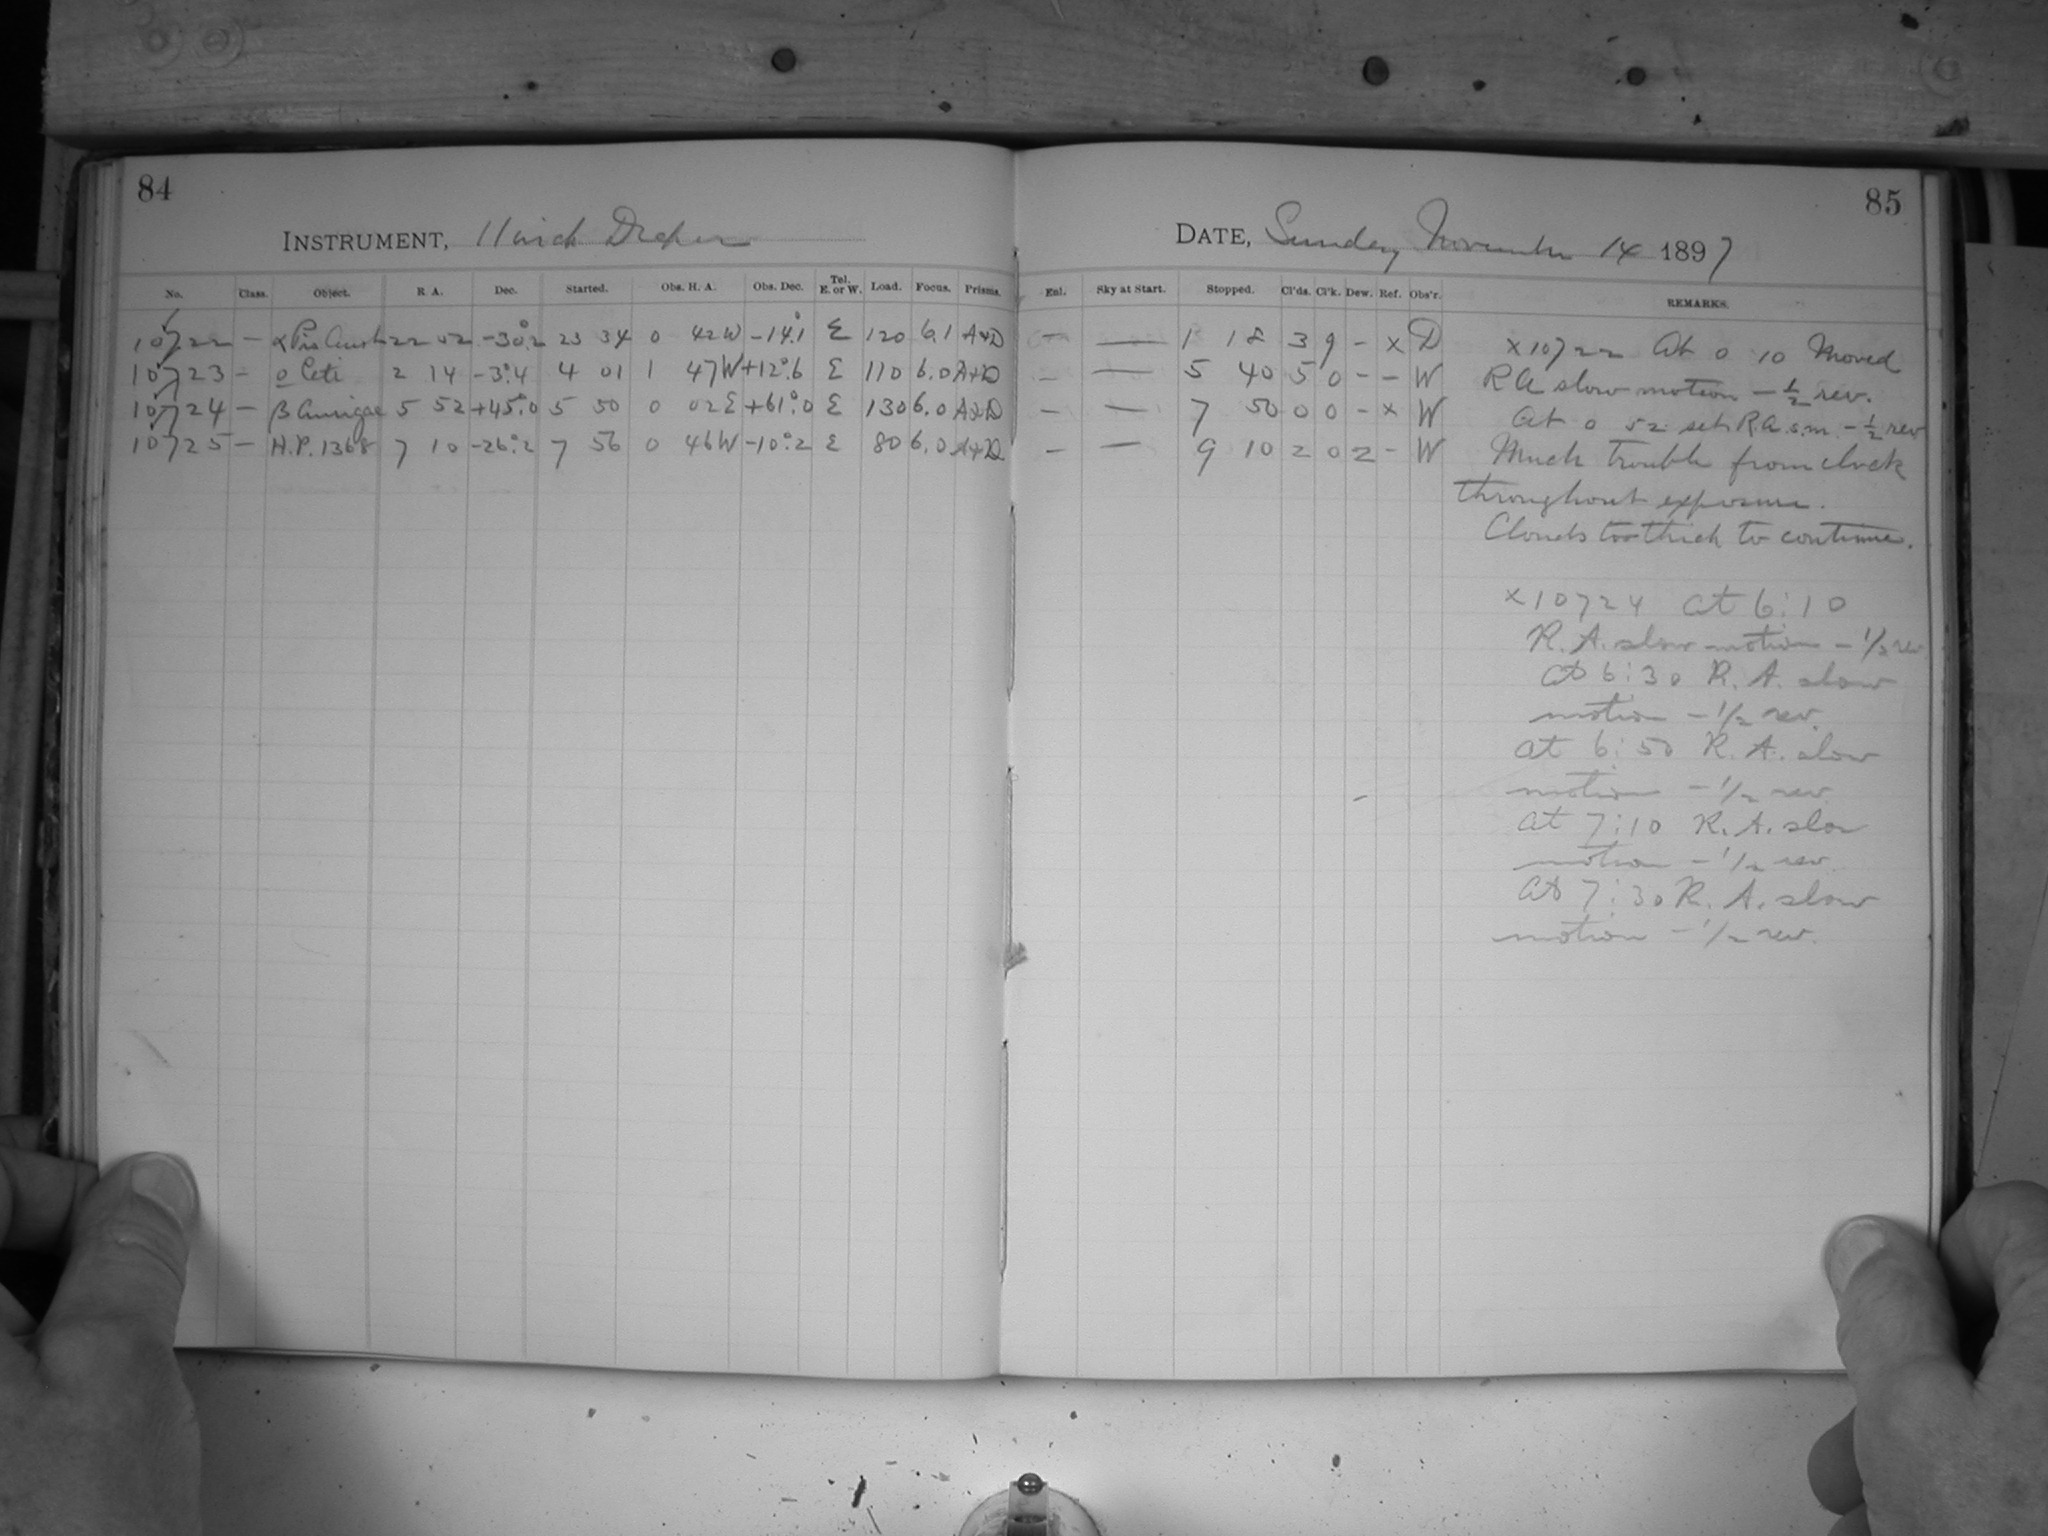 84
INSTRUMENT, 11 inch Draper
No. Class. Object. R. A. Dec. Started. Obs. H. A. Obs. Dec. Tel. E. or W. Load. Focus. Prisms.
10722 — α Pis Aust 22 52 -30°.2 23 34 0 42 W -14°.1 E 120 6.1 A+D
10723 — o Ceti 2 14 -3°.4 4 01 1 47 W +12°.6 E 110 6.0 A+D
10724 — β Aurigae 5 52 +45°.0 5 50 0 02 E +61°.0 E 130 6.0 A+D
10725 — H.P. 1368 7 10 -26°.2 7 56 0 46 W -10°.2 E 80 6.0 A+D
85
DATE, Sunday November 14 1897
Enl. Sky at Start. Stopped. Cl'ds. Cl'k. Dew. Ref. Obs'r. REMARKS.
— — 1 18 3 9 - x D
— — 5 40 5 0 - - W
— — 7 50 0 0 - x W
— — 9 10 2 0 2 - W
x10722 At 0 10 Moved
RA slow motion - ½ rev.
At 0 52 set RA s.m. - ½ rev
Much trouble from clock
throughout exposure.
Clouds too thick to continue.
x10724 at 6:10
R. A. slow motion - 1/2 rev
at 6:30 R. A. slow
motion - 1/2 rev.
at 6:50 R. A. slow
motion - 1/2 rev.
at 7:10 R. A. slow
motion - 1/2 rev.
at 7:30 R. A. slow
motion - 1/2 rev.